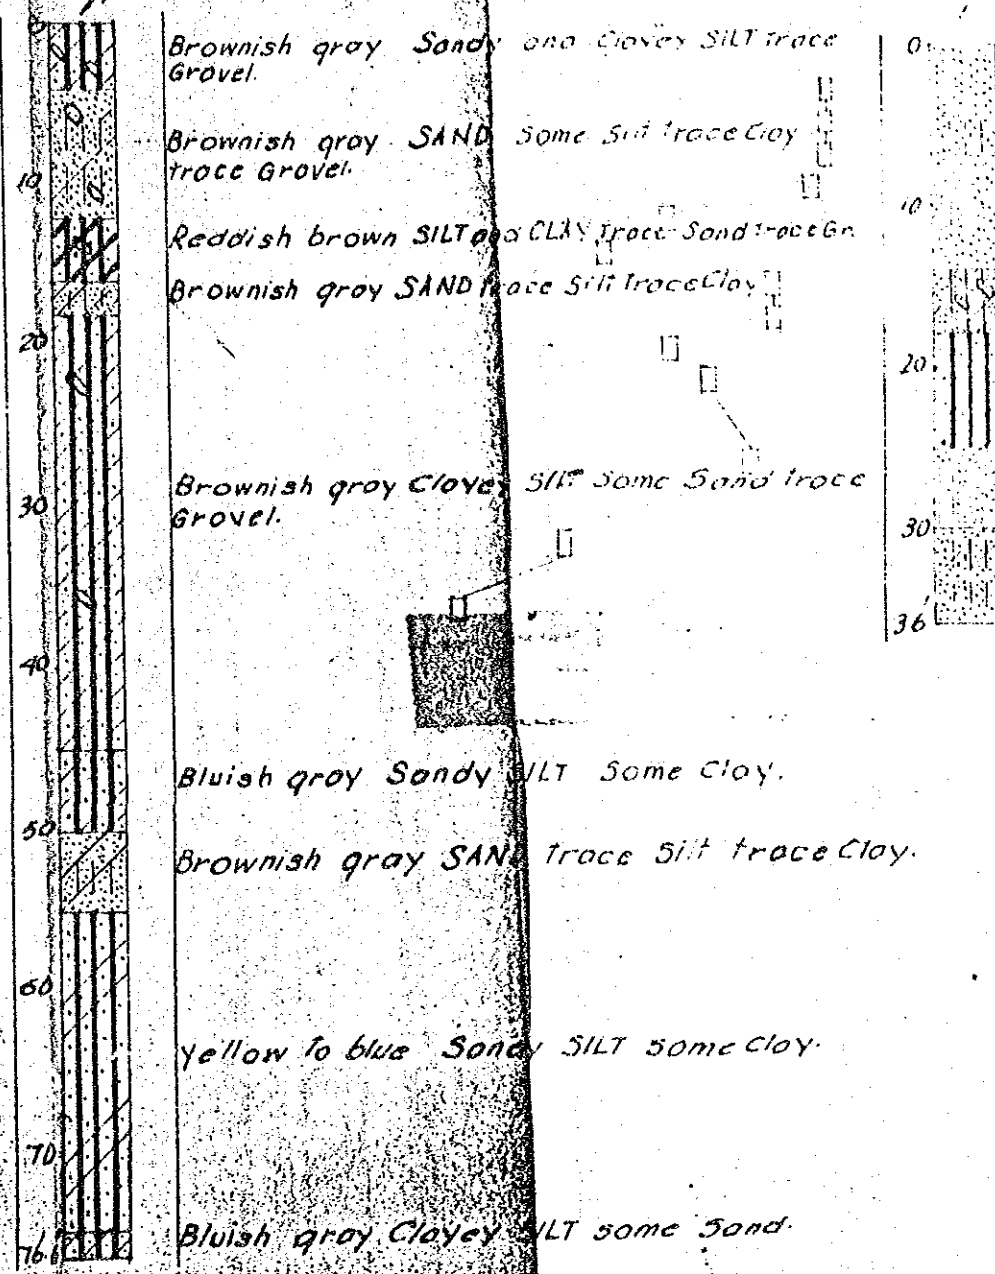 0
Brownish gray Sandy and Clayey SILT trace
Gravel.
Brownish gray SAND Some Silt trace Clay
trace Gravel.
10
Reddish brown SILT and CLAY trace Sand trace Gr.
Brownish gray SAND trace Silt trace Clay
20
Brownish gray Clayey SILT Some Sand trace
Gravel.
30
40
Bluish gray Sandy SILT Some Clay.
50
Brownish gray SAND trace Silt trace Clay.
60
Yellow to blue Sandy SILT some Clay.
70
Bluish gray Clayey SILT some Sand.
0
10
20
30
36'